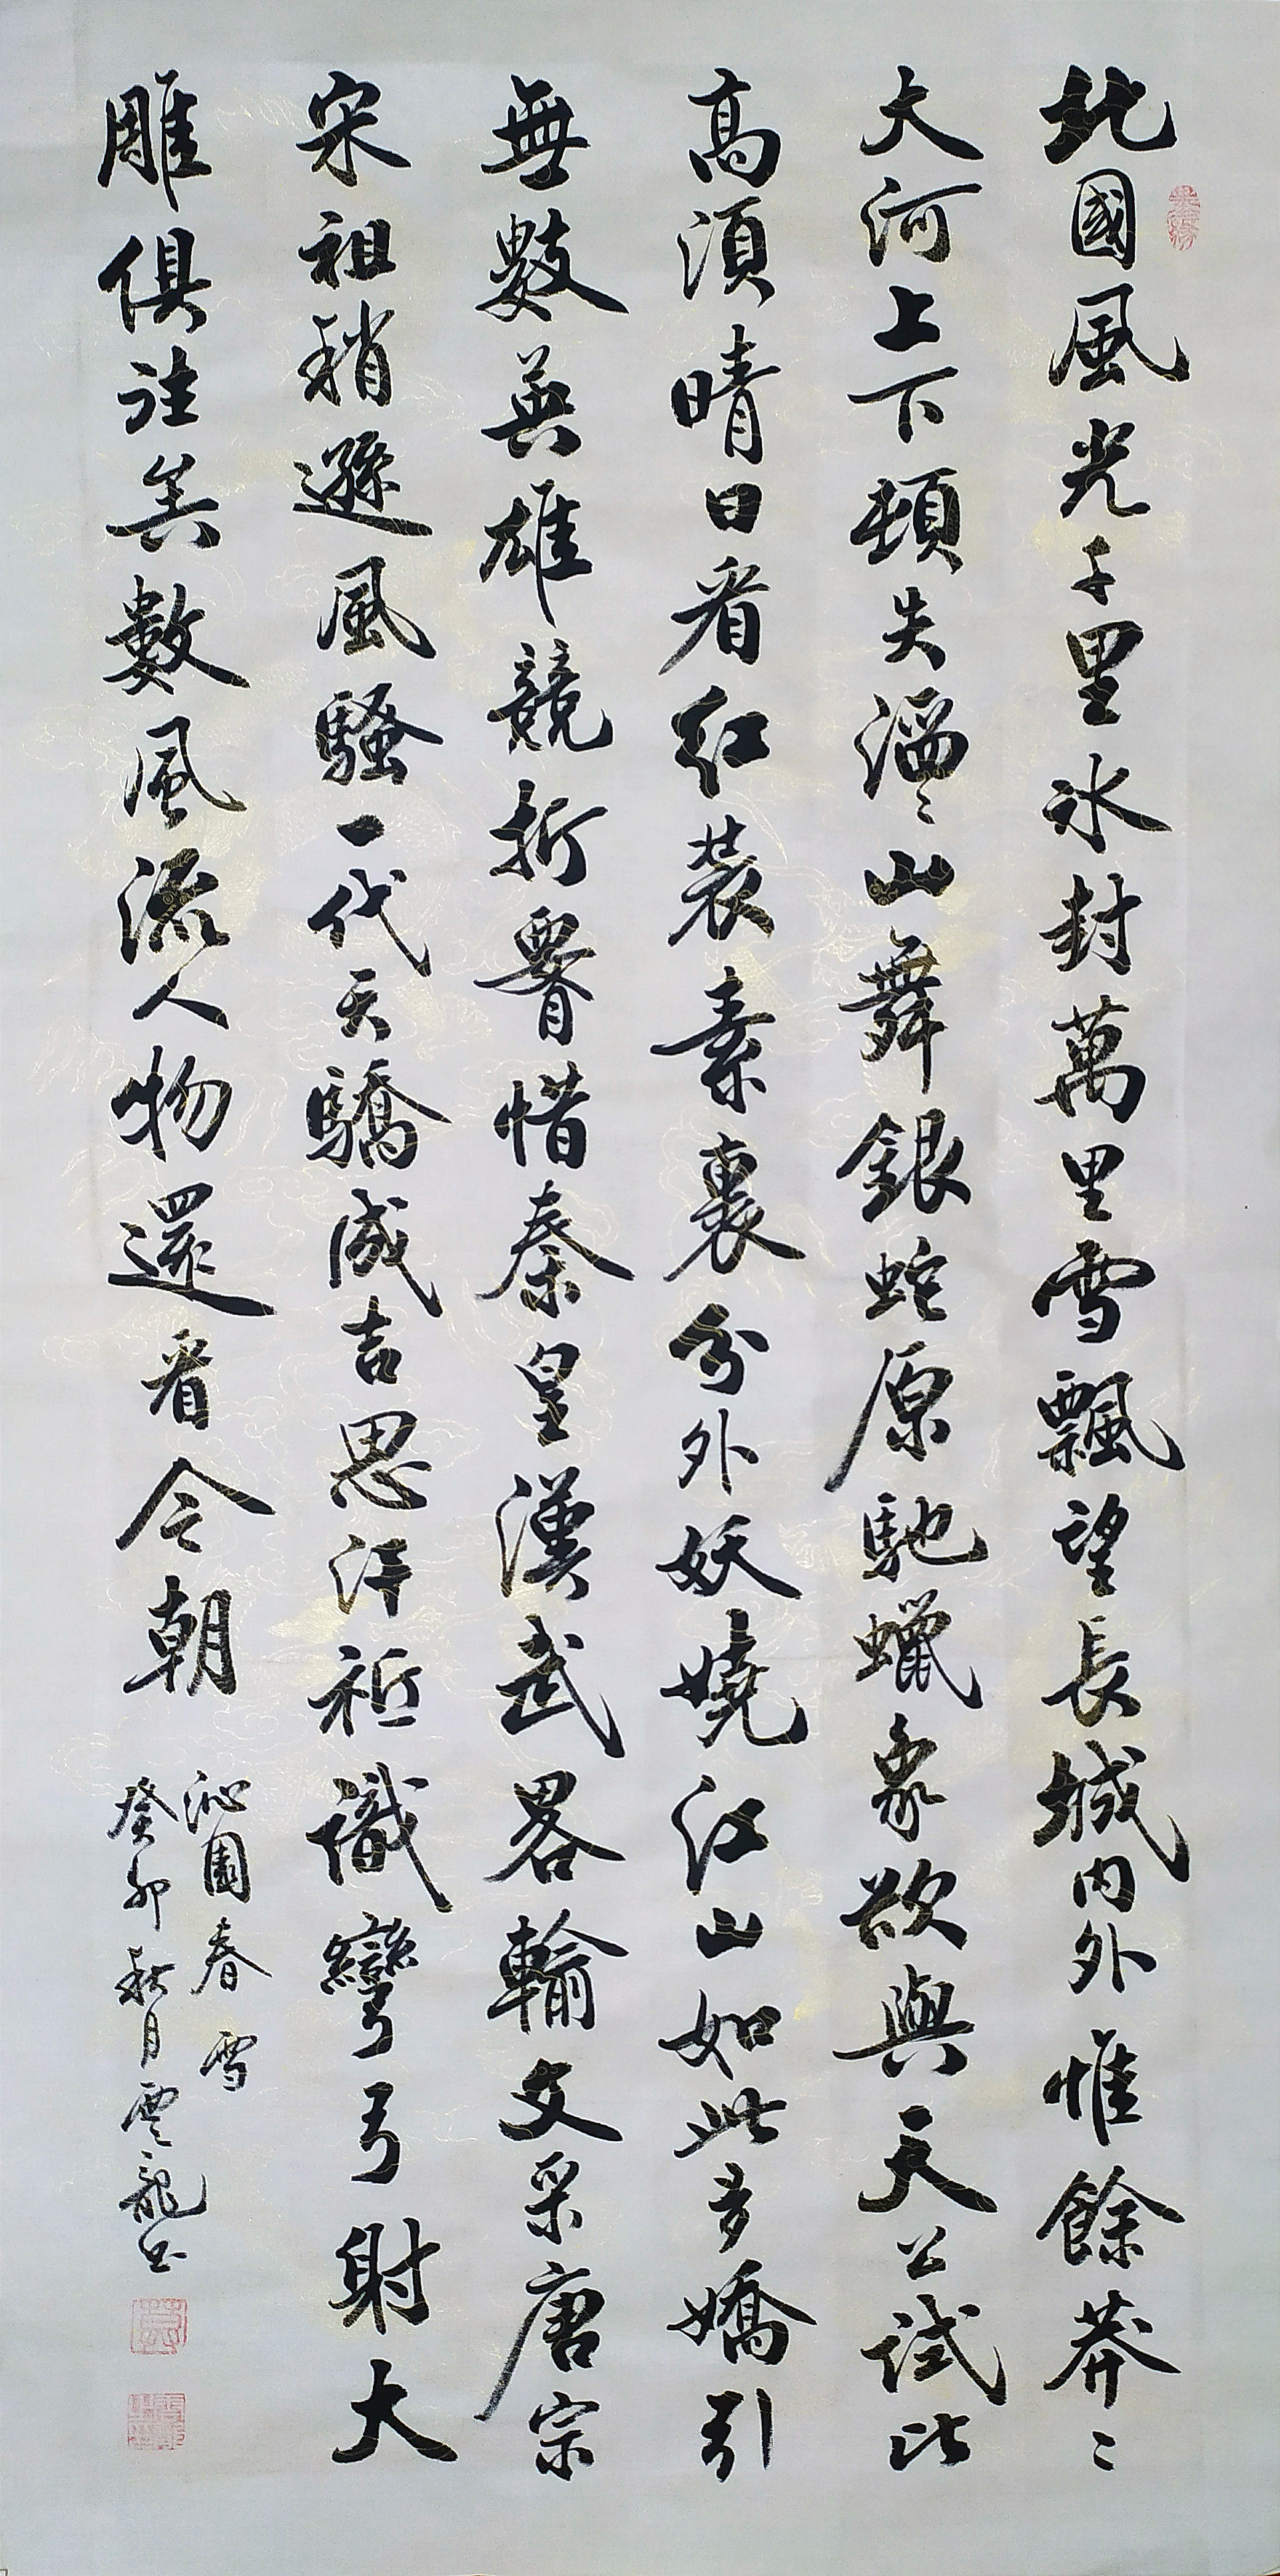 北國風光千里冰封萬里雪飄望長城内外惟餘莽〻
大河上下頓失滔〻山舞銀蛇原馳蠟象欲與天公試比
高須晴日看紅裝素裹分外妖嬈江山如此多嬌引
無數英雄競折腰惜秦皇漢武畧輸文采唐宗
宋祖稍遜風騷一代天驕成吉思汗祗識彎弓射大
雕俱往矣數風流人物還看今朝
沁園春雪
癸卯秋月雲龍书